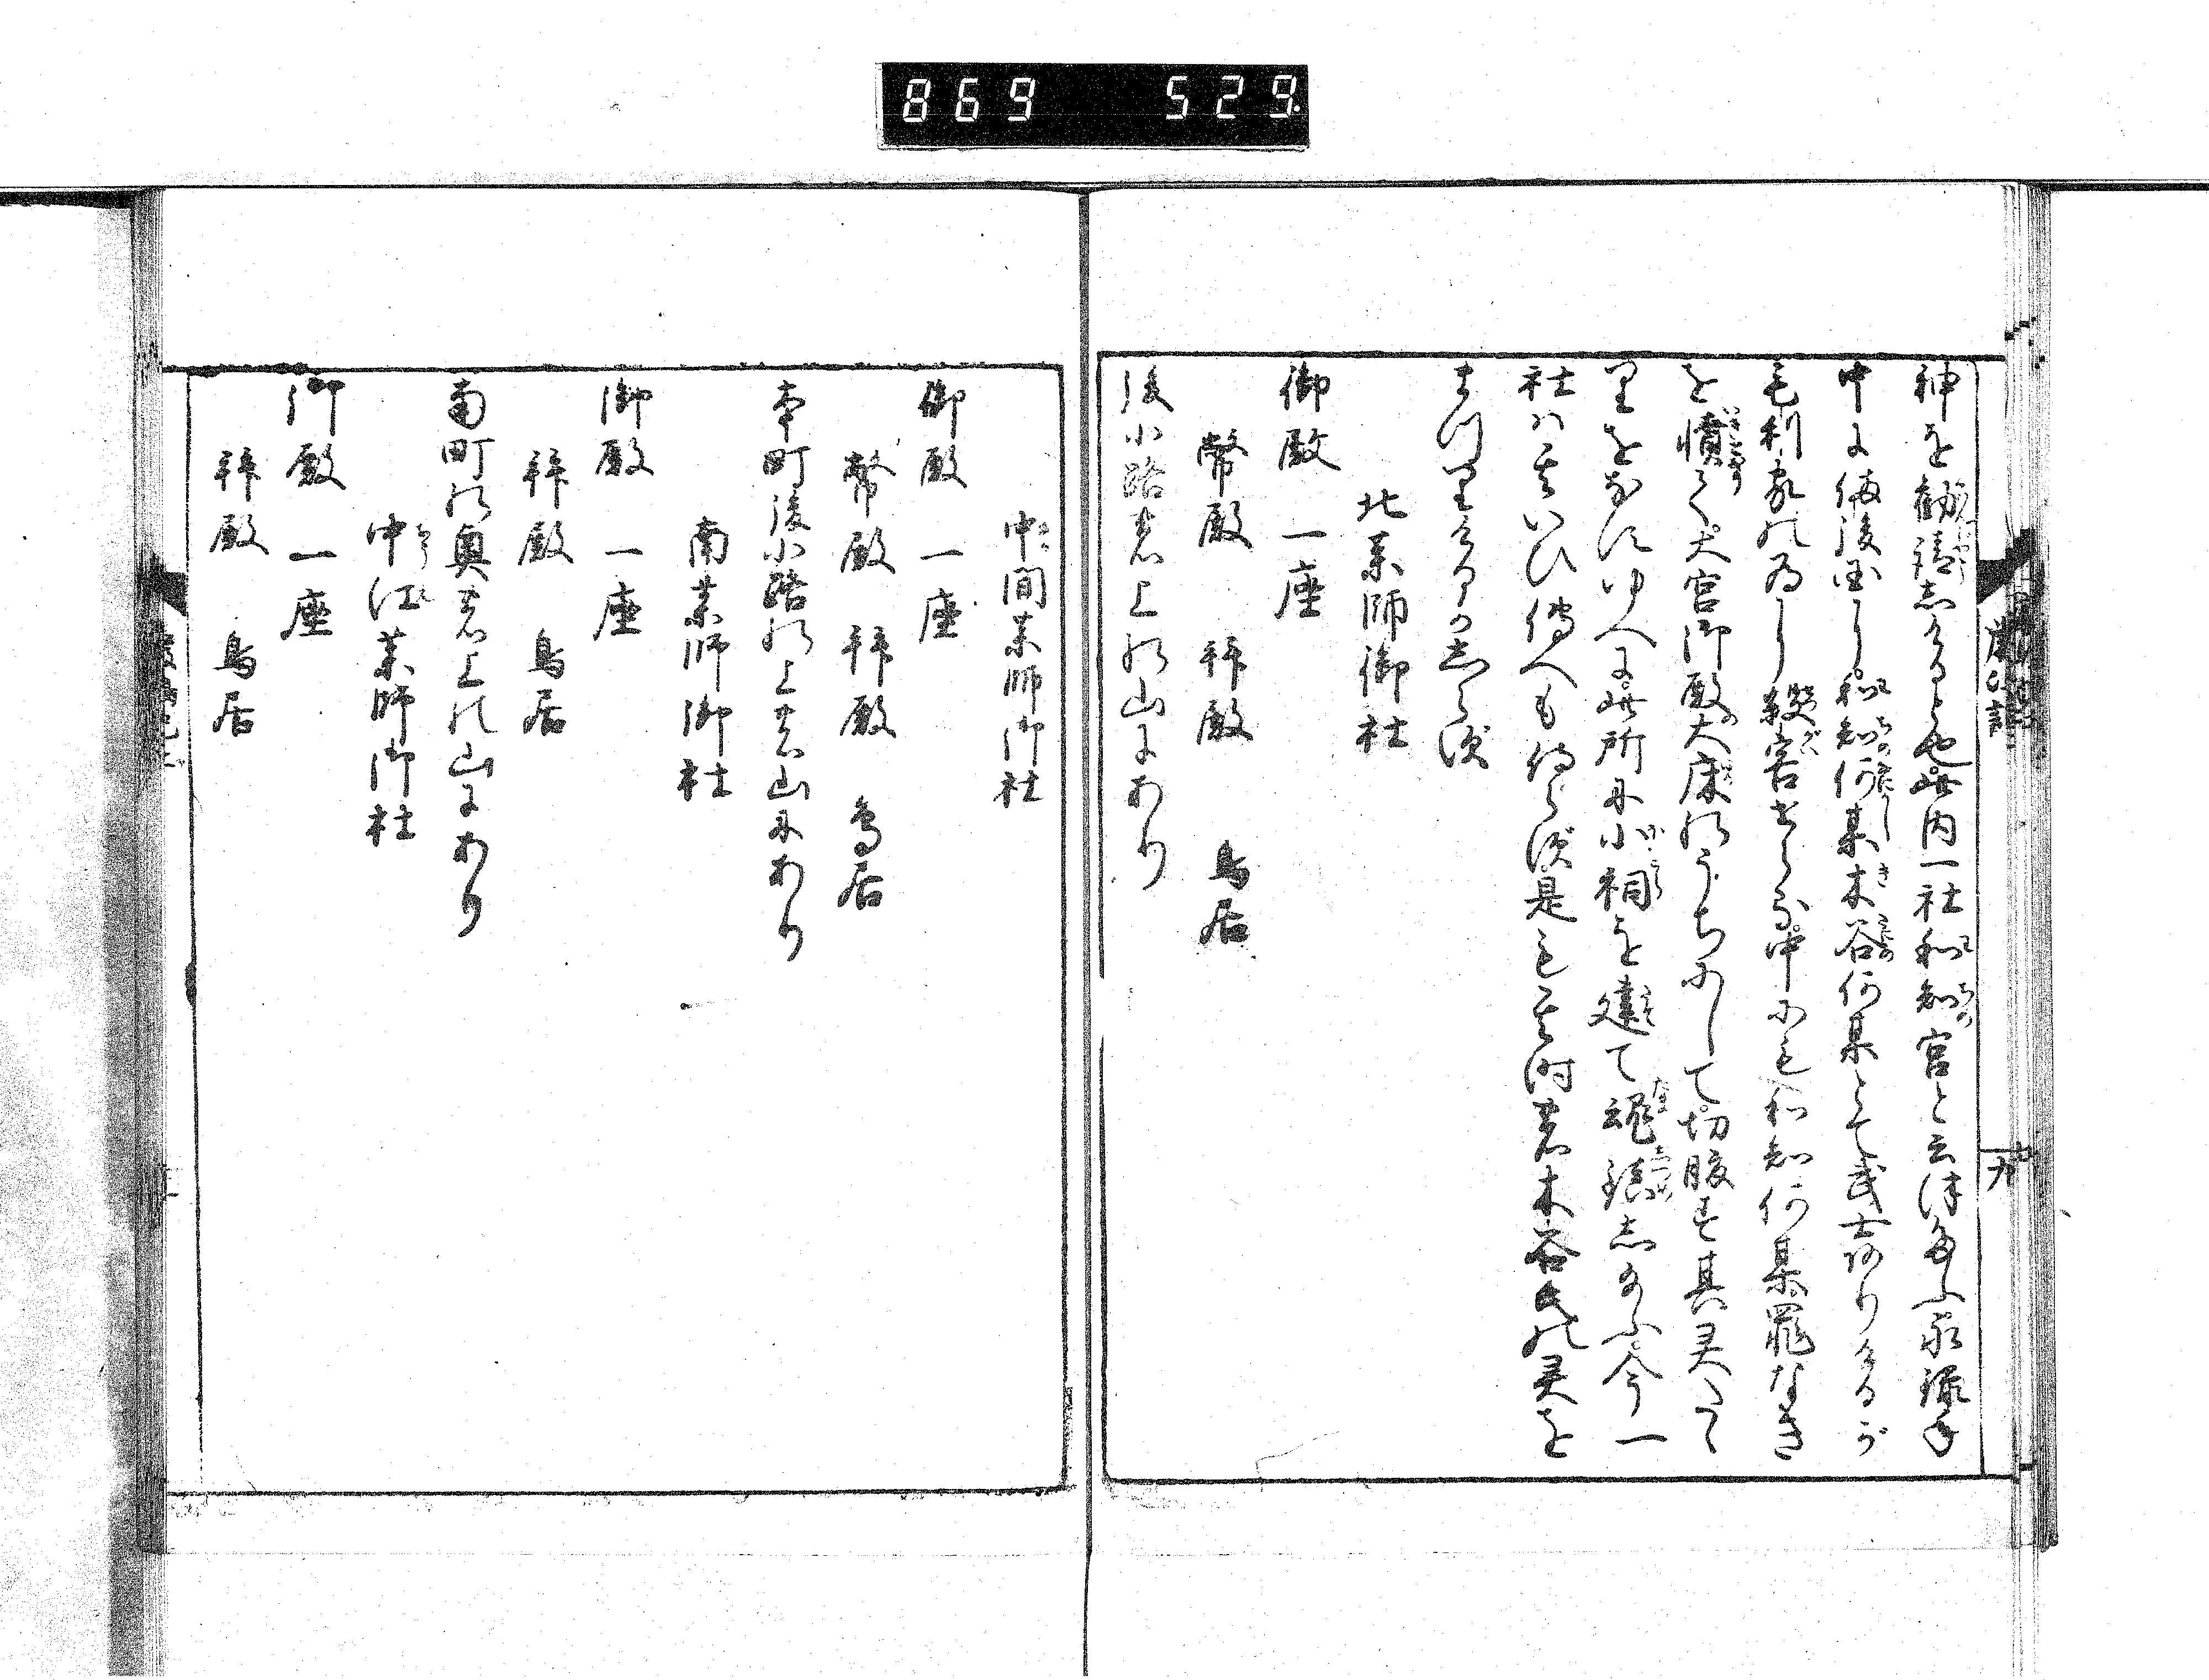 869 529
神を勧請志けるとや此内一社和知宮と云伝ふ永禄年
中に備後国に和知何某木谷何某とて武士ありけるが
毛利家のために殺害せらる中にも和知何某罪なき
を憤て大宮御殿大床のうちにして切腹す其灵たゝ
りをなすゆへに此所に小祠を建て魂鎮志給ふ今一
社ハ其いひ傳へも侍らず是も其時の木谷氏の灵を
まつりけるか志らず
北薬師御社
御殿 一座
幣殿 拝殿 鳥居
後小路の上の山にあり
中間薬師御社
御殿 一座
幣殿 拝殿 鳥居
本町後小路の上の山にあり
南薬師御社
御殿 一座
拝殿 鳥居
南町の奥の上の山にあり
中江薬師御社
御殿 一座
拝殿 鳥居